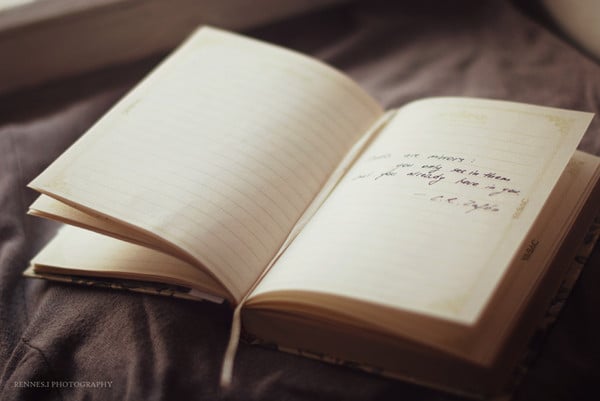 Books are mirrors:
you only see in them
what you already have in you.
— C.R. Zafón
RENNES.I PHOTOGRAPHY